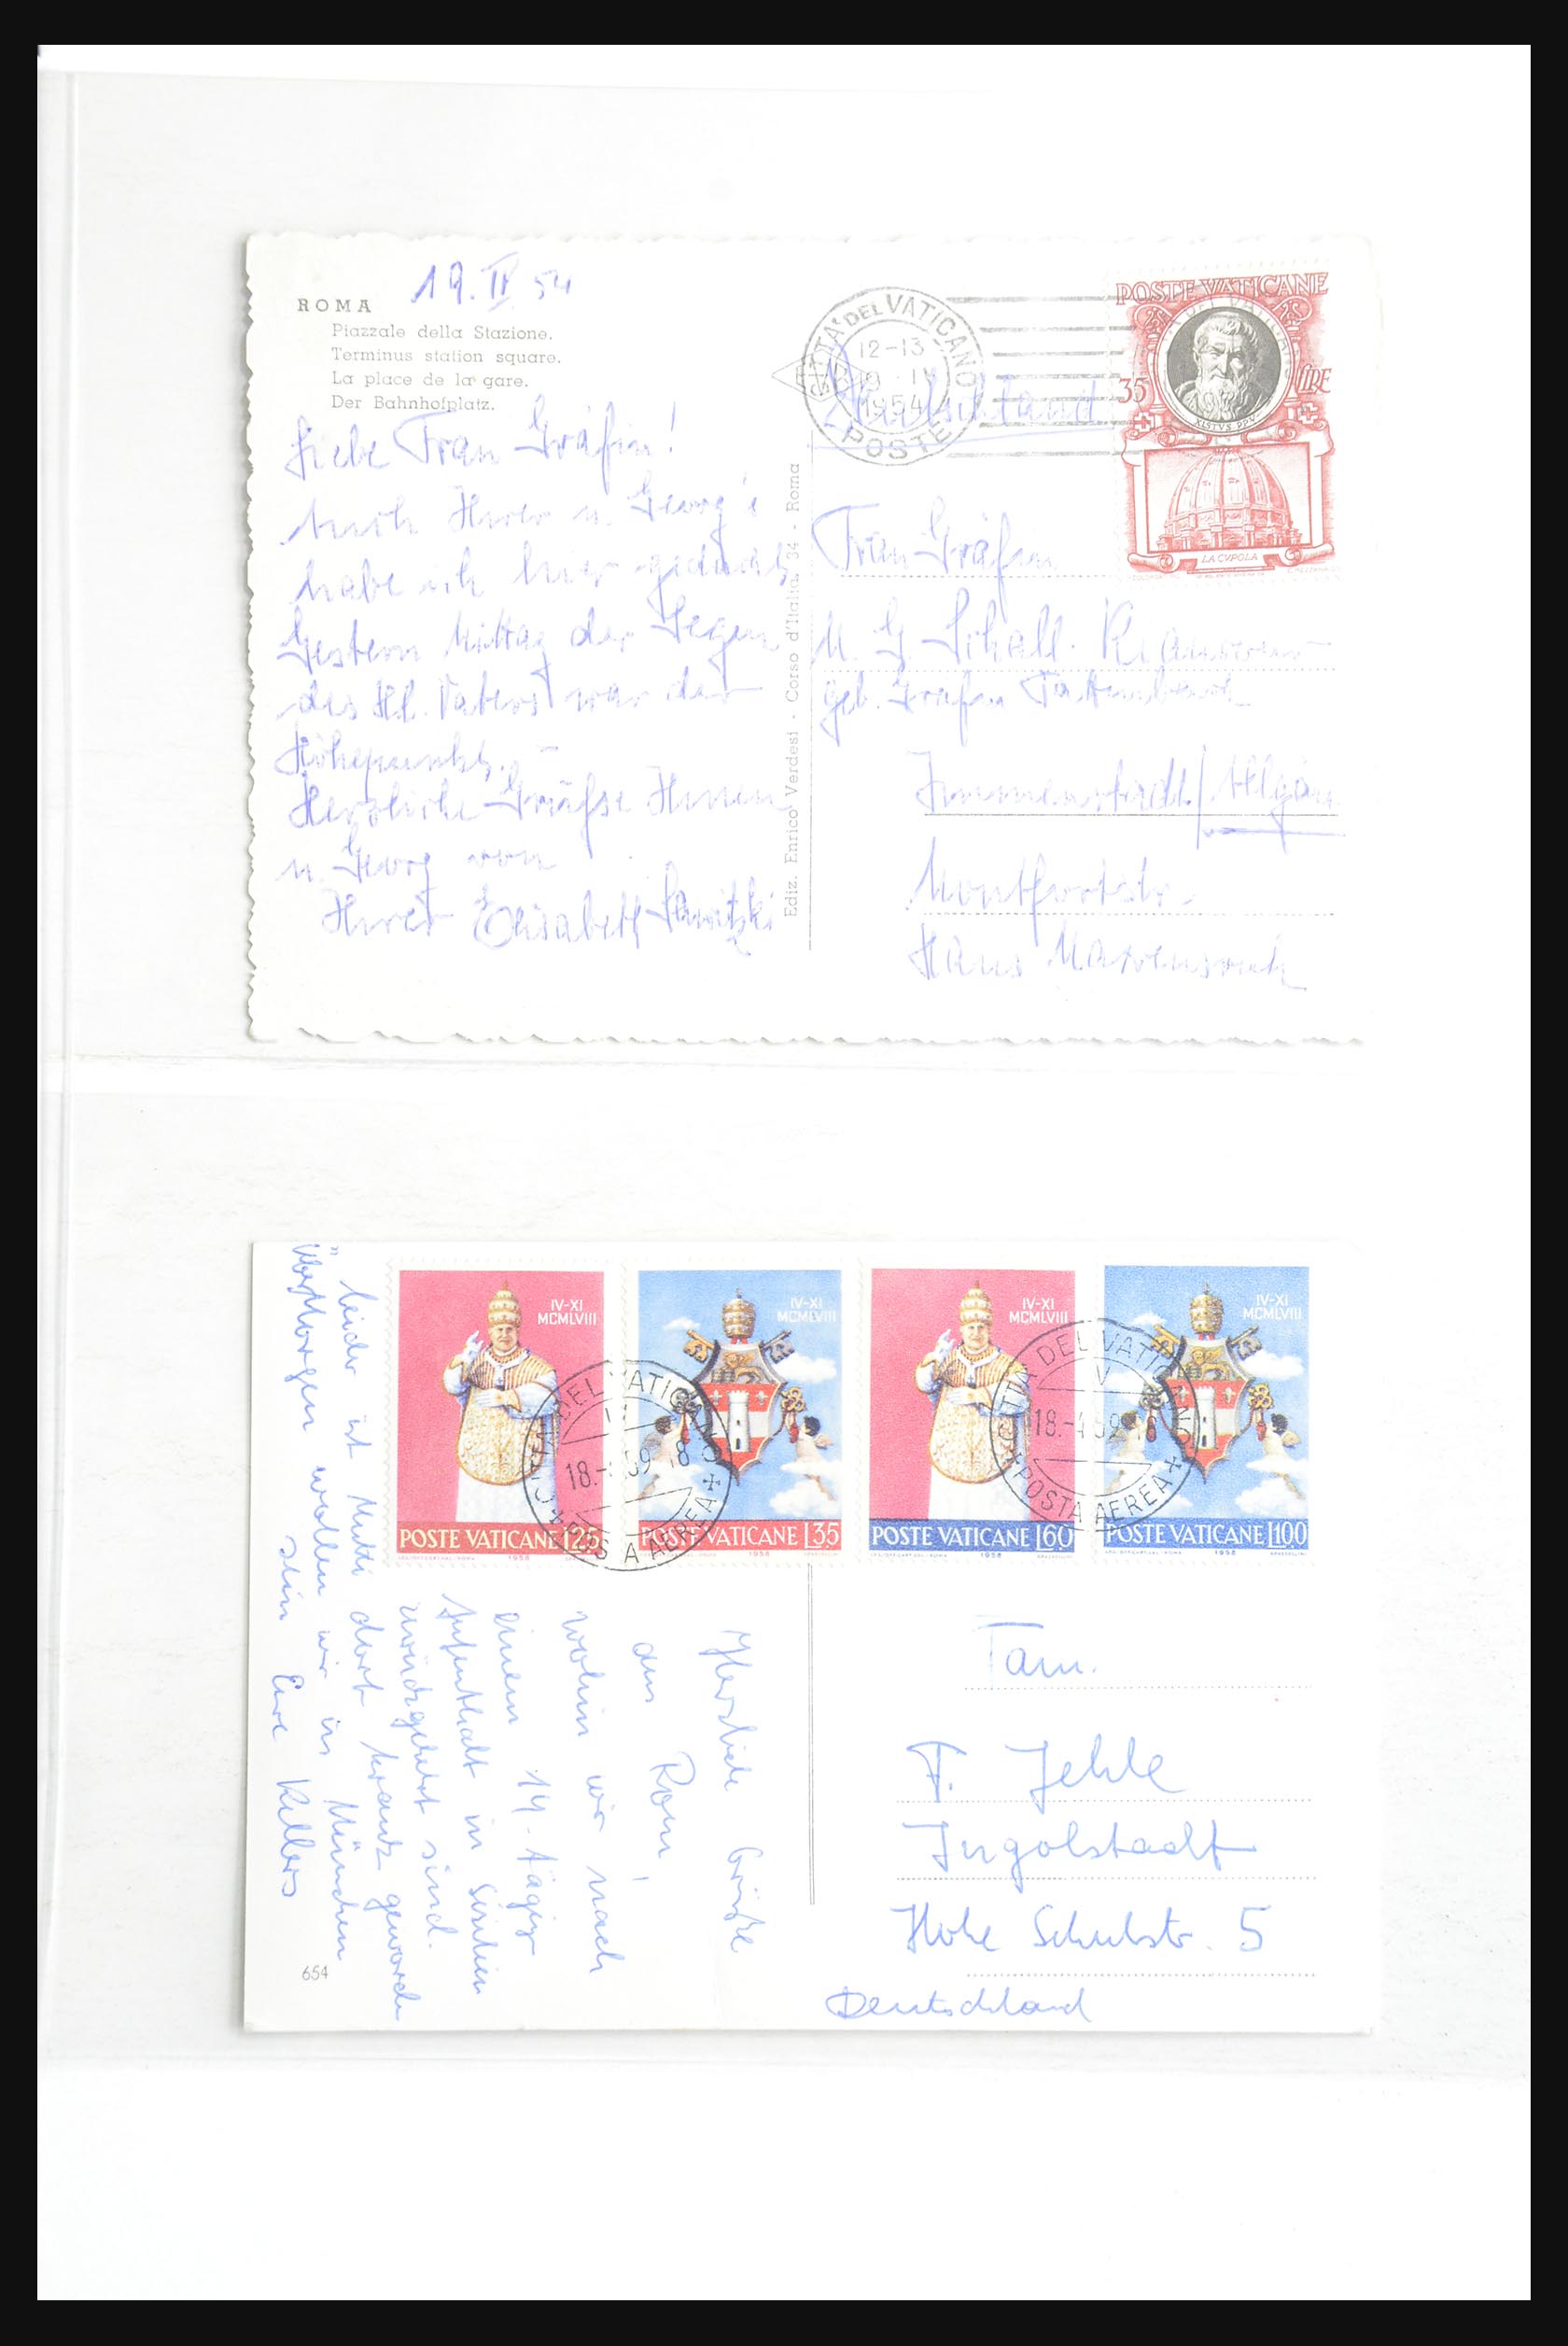 19. IV 54
ROMA
Piazzale della Stazione.
Terminus station square.
La place de la gare.
Der Bahnhofplatz.
Liebe Frau Gräfin!
Auch Ihrer u. Georg's
habe ich hier gedacht
Gestern Mittag der Segen
des Hl. Vaters war der
Höhepunkt. –
Herzliche Grüße Ihnen
u. Georg von
Ihrer Elisabeth
Ediz. Enrico Verdesi - Corso d'Italia, 34 - Roma
CITTA' DEL VATICANO
12-13
19 · IV
1954
POSTE
POSTE VATICANE
35 LIRE
XISTVS PP.V
LA CVPOLA
Deutschland
Frau Gräfin
M. G. Schall-Riaucour
geb. Gräfin Tattenbach
Immenstadt/Allgäu
Montfortstr.
Haus
IV-XI
MCMLVIII
POSTE VATICANE L25
1958
IV-XI
MCMLVIII
POSTE VATICANE L35
1958
IV-XI
MCMLVIII
POSTE VATICANE L60
1958
IV-XI
MCMLVIII
POSTE VATICANE L100
1958
CITTA DEL VATICANO
18.-4.59 18
POSTA AEREA
CITTA DEL VATICANO
V
18.-4.59 18
POSTA AEREA
Herzliche Grüße
aus Rom,
wohin wir nach
einem 14-tägigen
Aufenthalt in Sizilien
zurückgekehrt sind.
Leider ist Mutti dort krank geworden
Übermorgen wollen wir in München
sein Eure
654
Fam.
F. Jehle
Ingolstadt
Hohe Schulstr. 5
Deutschland